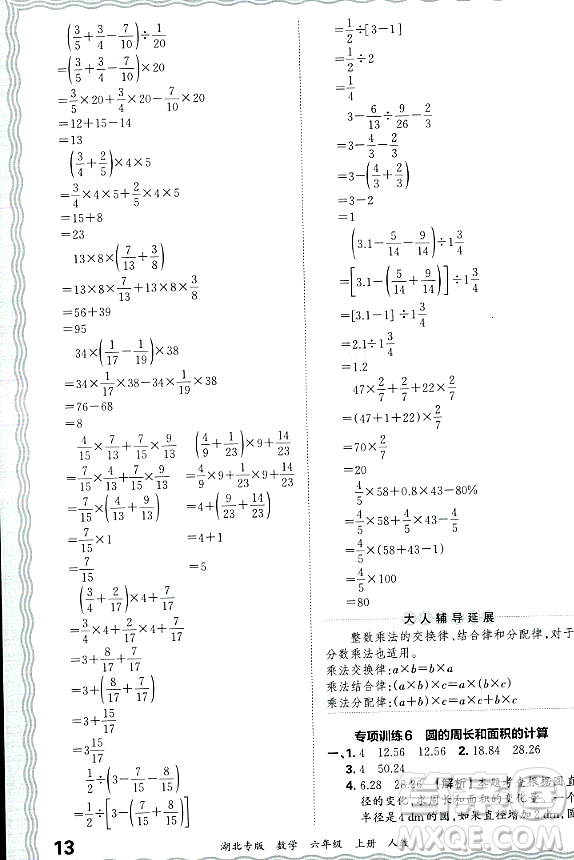 (3/5+3/4-7/10)÷1/20
=(3/5+3/4-7/10)×20
=3/5×20+3/4×20-7/10×20
=12+15-14
=13
(3/4+2/5)×4×5
=3/4×4×5+2/5×4×5
=15+8
=23
13×8×(7/13+3/8)
=13×8×7/13+13×8×3/8
=56+39
=95
34×(1/17-1/19)×38
=34×1/17×38-34×1/19×38
=76-68
=8
4/15×7/13+7/15×9/13
=7/15×4/13+7/15×9/13
=7/15×(4/13+9/13)
=7/15×1
=7/15
(4/9+1/23)×9+14/23
=4/9×9+1/23×9+14/23
=4+(9/23+14/23)
=4+1
=5
(3/4+2/17)×4+7/17
=3/4×4+2/17×4+7/17
=3+8/17+7/17
=3+(8/17+7/17)
=3+15/17
=3 15/17
1/2÷(3-5/13-8/13)
=1/2÷[3-(5/13+8/13)]
=1/2÷[3-1]
=1/2÷2
=1/4
3-6/13÷9/26-2/3
=3-4/3-2/3
=3-(4/3+2/3)
=3-2
=1
(3.1-5/14-9/14)÷1 3/4
=[3.1-(5/14+9/14)]÷1 3/4
=[3.1-1]÷1 3/4
=2.1÷1 3/4
=1.2
47×2/7+2/7+22×2/7
=(47+1+22)×2/7
=70×2/7
=20
4/5×58+0.8×43-80%
=4/5×58+4/5×43-4/5
=4/5×(58+43-1)
=4/5×100
=80
大人辅导延展
整数乘法的交换律、结合律和分配律，对于
分数乘法也适用。
乘法交换律：a×b=b×a
乘法结合律：(a×b)×c=a×(b×c)
乘法分配律：(a+b)×c=a×c+b×c
专项训练6 圆的周长和面积的计算
一、1. 4 12.56 12.56 2. 18.84 28.26
3. 4 50.24
4. 6.28 28.26 【解析】本题考查根据圆直
径的变化，求周长和面积的变化量。
半径是4 dm，如果直径增加2 dm，
13 湖北专版 数学 六年级 上册 人教